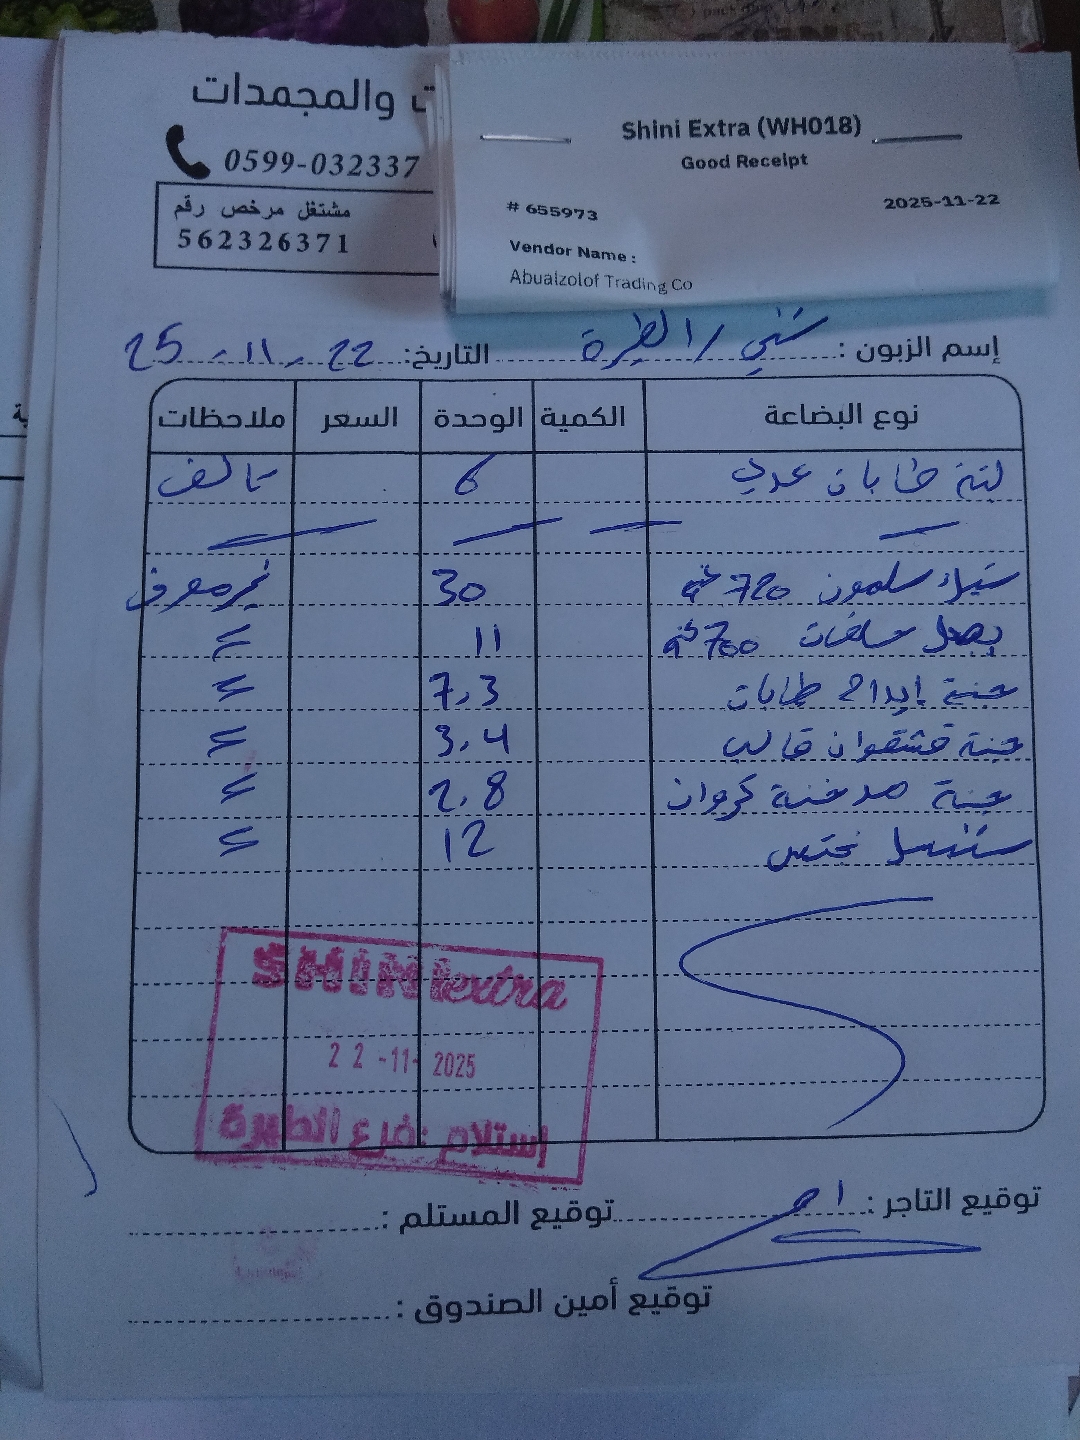 ت والمجمدات
0599-032337
مشتغل مرخص رقم
562326371
Shini Extra (WH018)
Good Receipt
# 655973
2025-11-22
Vendor Name :
Abuaizolof Trading Co
إسم الزبون : شني / الطيرة التاريخ: 22 - 11 - 25
نوع البضاعة الكمية الوحدة السعر ملاحظات
طابات عدي 6 تالف
ستيك سلمون 720 30 غير معرف
بصل حلقات 700 11 〃
جبنة إيدام طابات 7,3 〃
جبنة قشقوان قالب 3,4 〃
جبنة مدخنة كروان 2,8 〃
12 〃
SHINI extra
22 -11- 2025
إستلام : فرع الطيرة
توقيع التاجر :
توقيع المستلم :
توقيع أمين الصندوق :